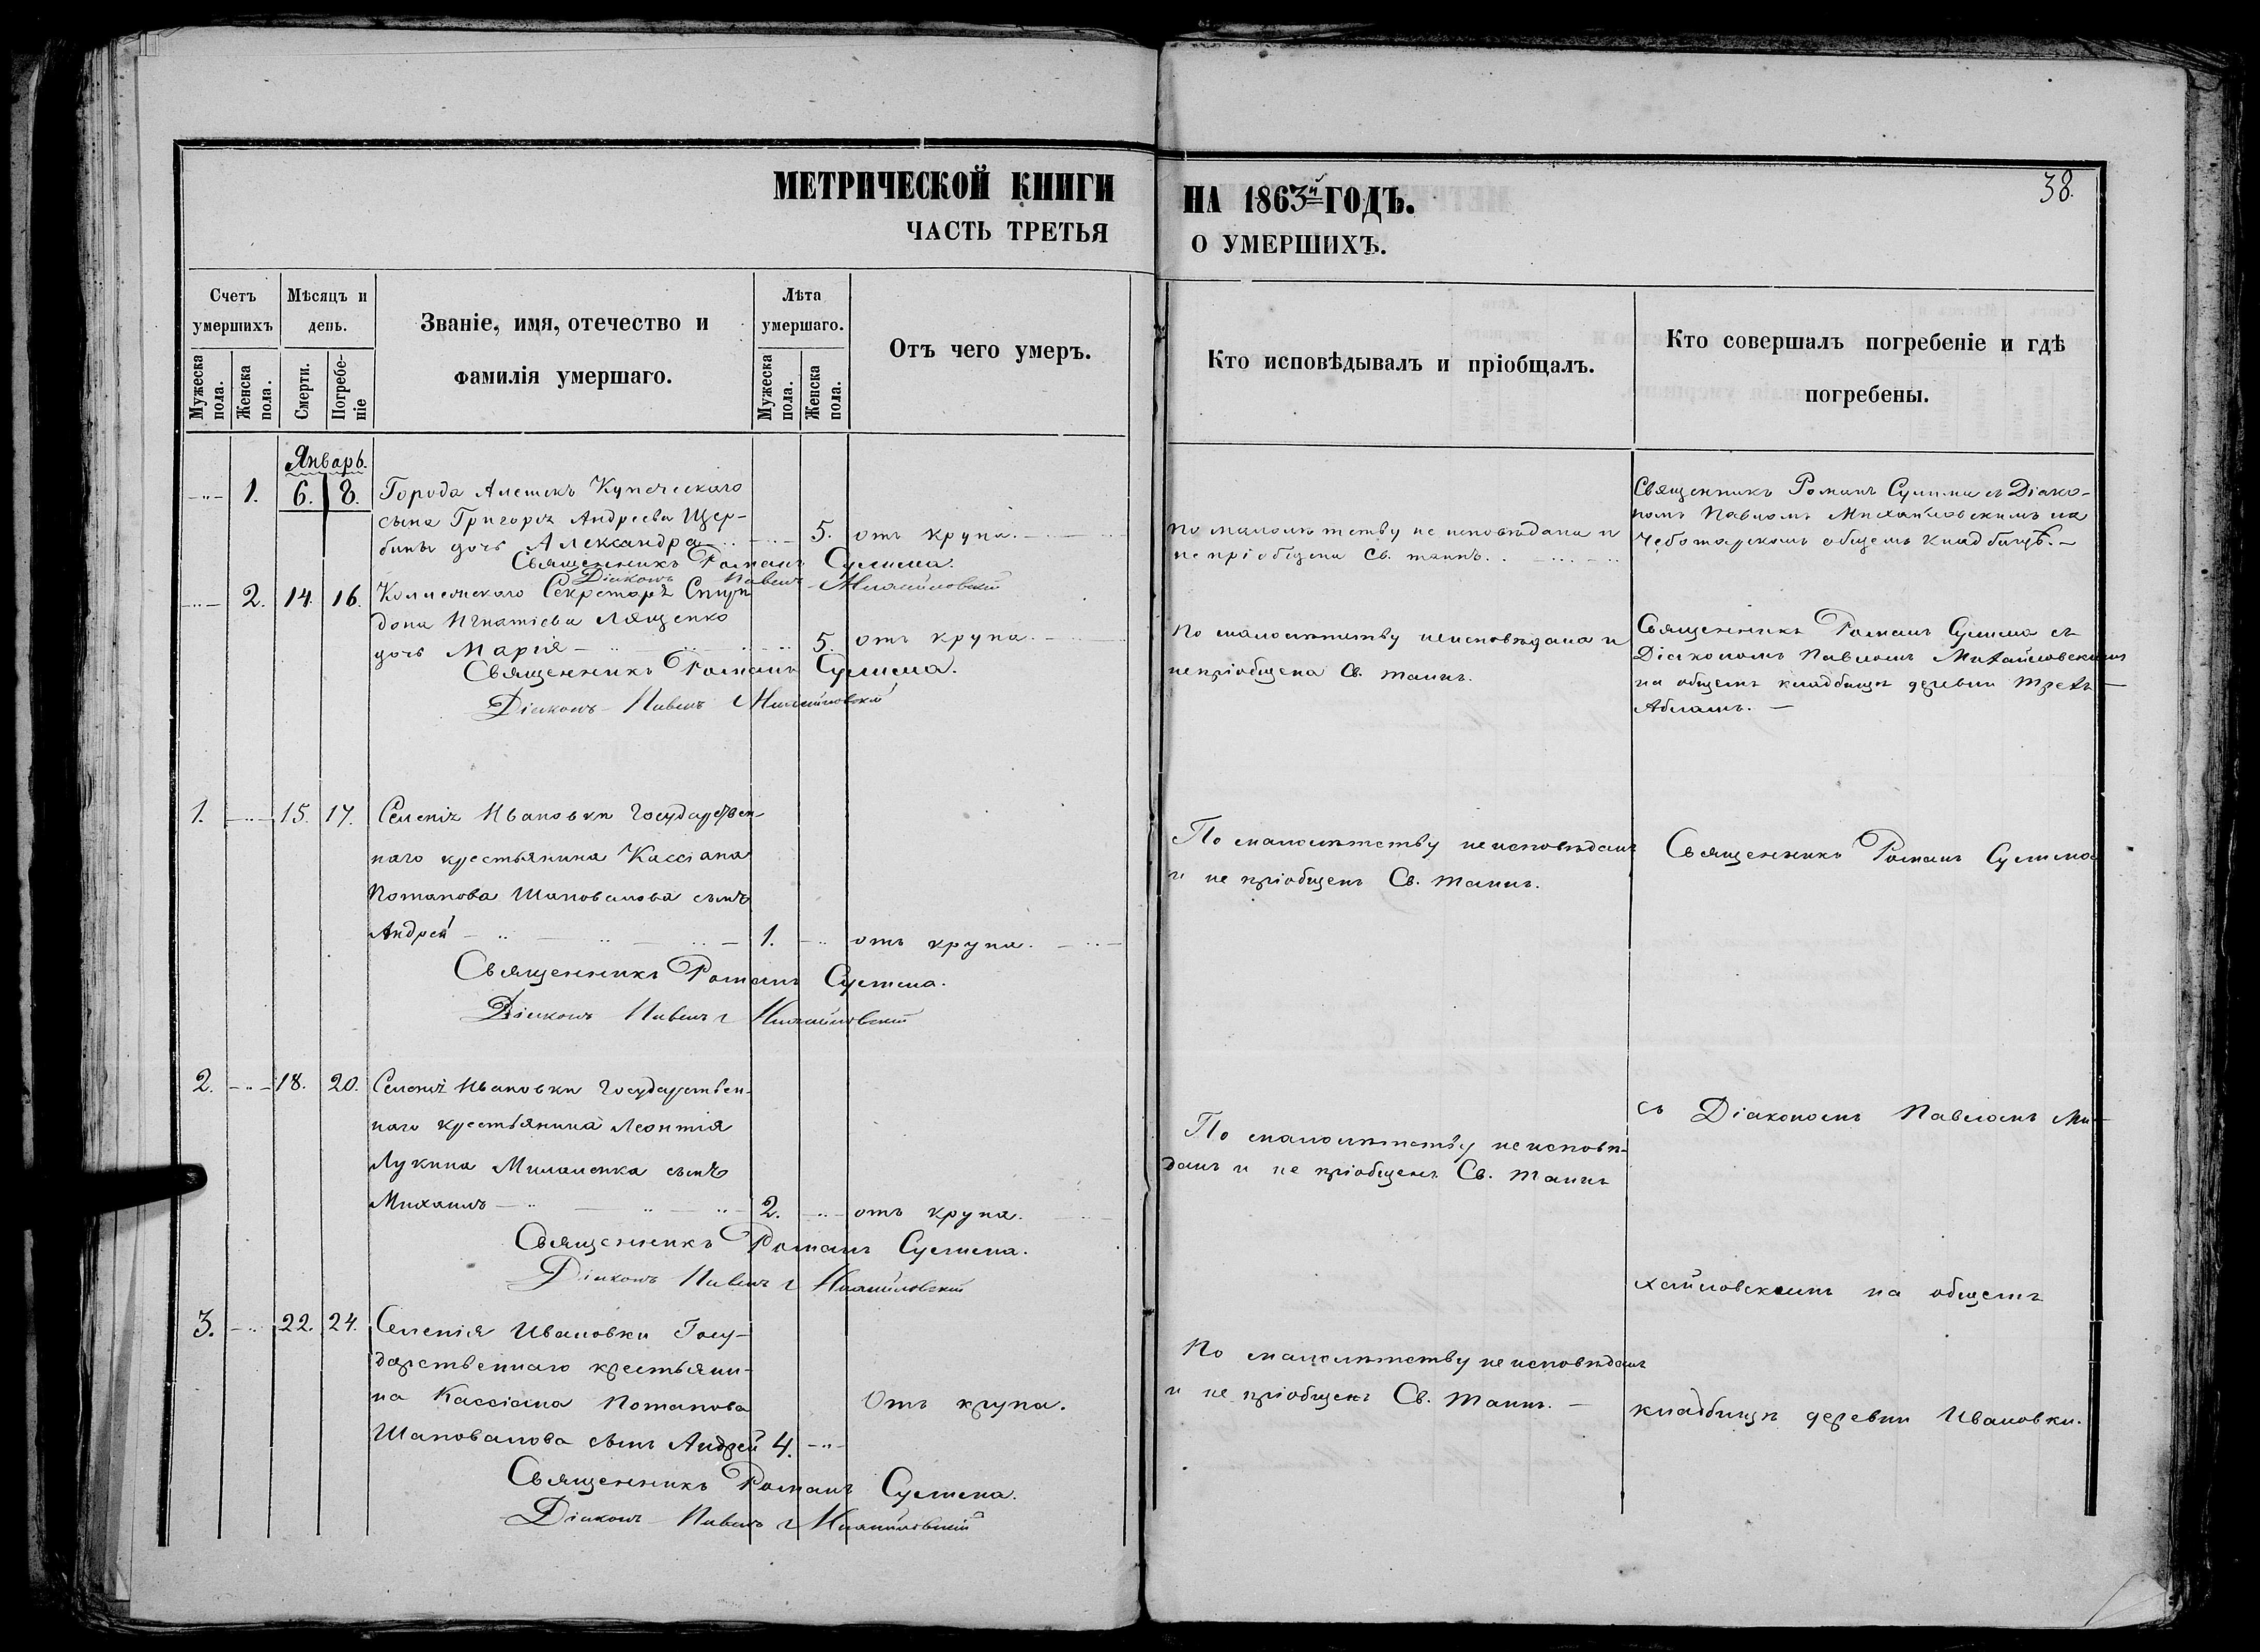 МЕТРИЧЕСКОЙ КНИГИ
ЧАСТЬ ТРЕТЬЯ
Счетъ умершихъ
Мѣсяцъ и день.
Званіе, имя, отечество и фамилія умершаго.
Лѣта умершаго.
Отъ чего умеръ.
Мужеска пола.
Женска пола.
Смерти.
Погребеніе
Мужеска пола.
Женска пола.
Январь.
1. 6. 8. Города Алешекъ Купеческаго
сына Григорія Андреева Щер-
бины дочь Александра 5. отъ крупа.
Священникъ Романъ Сулима.
Діаконъ Павелъ Михайловскій
2. 14. 16. Коллежскаго Секретаря Спири
дона Игнатіева Лященко
дочь Марія 5. отъ крупа.
Священникъ Романъ Сулима.
Діаконъ Павелъ Михайловскій
1. 15. 17. Селенія Ивановки Государствен-
наго крестьянина Кассіана
Потапова Шаповалова сынъ
Андрей 1. отъ крупа.
Священникъ Романъ Сулима.
Діаконъ Павелъ Михайловскій
2. 18. 20. Селенія Ивановки Государствен-
наго крестьянина Леонтія
Лукина сынъ
Михаилъ 2. отъ крупа.
Священникъ Романъ Сулима.
Діаконъ Павелъ Михайловскій
3. 22. 24. Селенія Ивановки Госу-
дарственнаго крестьяни-
на Кассіана Потапова Отъ крупа.
Шаповалова сынъ Андрей 4.
Священникъ Романъ Сулима.
Діаконъ Павелъ Михайловскій
НА 1863й ГОДЪ.
О УМЕРШИХЪ.
38.
Кто исповѣдывалъ и пріобщалъ.
Кто совершалъ погребеніе и гдѣ погребены.
по малолѣтству не исповѣдана и
не пріобщена Св. таинъ.
Священникъ Романъ Сулима съ Діако-
номъ Павломъ Михайловскимъ на
Чеботарскомъ общемъ кладбищѣ.
По малолѣтству неисповѣдана и
непріобщена Св. таинъ.
Священникъ Романъ Сулима съ
Діакономъ Павломъ Михайловскимъ
на общемъ кладбищѣ деревни Трехъ
Абламъ.
По малолѣтству неисповѣданъ
и не пріобщенъ Св. таинъ.
Священникъ Романъ Сулима
По малолѣтству неисповѣ-
данъ и не пріобщенъ Св. таинъ
съ Діакономъ Павломъ Ми-
хайловскимъ на общемъ
По малолѣтству неисповѣданъ
и не пріобщенъ Св. таинъ.
кладбищѣ деревни Ивановки.